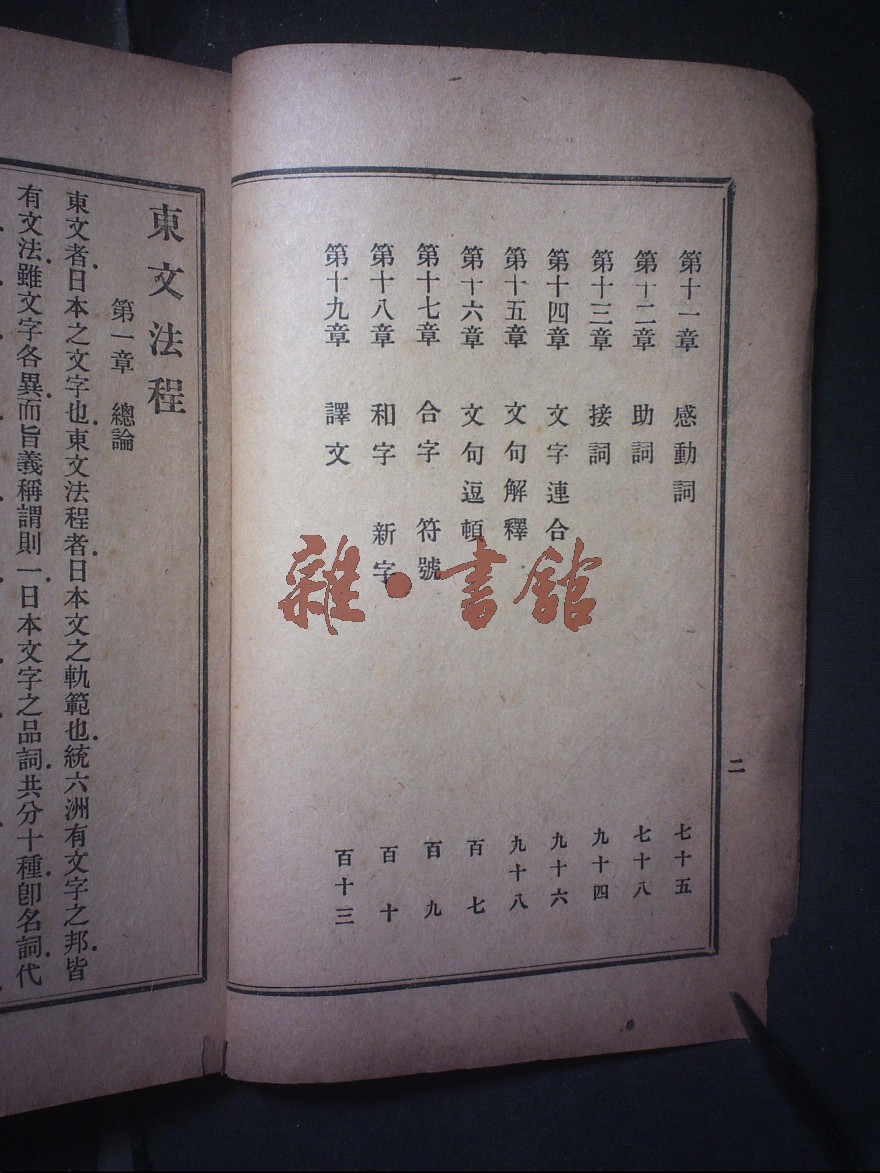 第十一章 感動詞 七十五
第十二章 助詞 七十八
第十三章 接詞 九十四
第十四章 文字連合 九十六
第十五章 文句解釋 九十八
第十六章 文句逗頓 百七
第十七章 合字 符號 百九
第十八章 和字 新字 百十
第十九章 譯文 百十三
二
雜·書館
東文法程
第一章 總論
東文者日本之文字也東文法程者日本文之軌範也統六洲有文字之邦皆
有文法雖文字各異而旨義稱謂則一日本文字之品詞共分十種卽名詞代